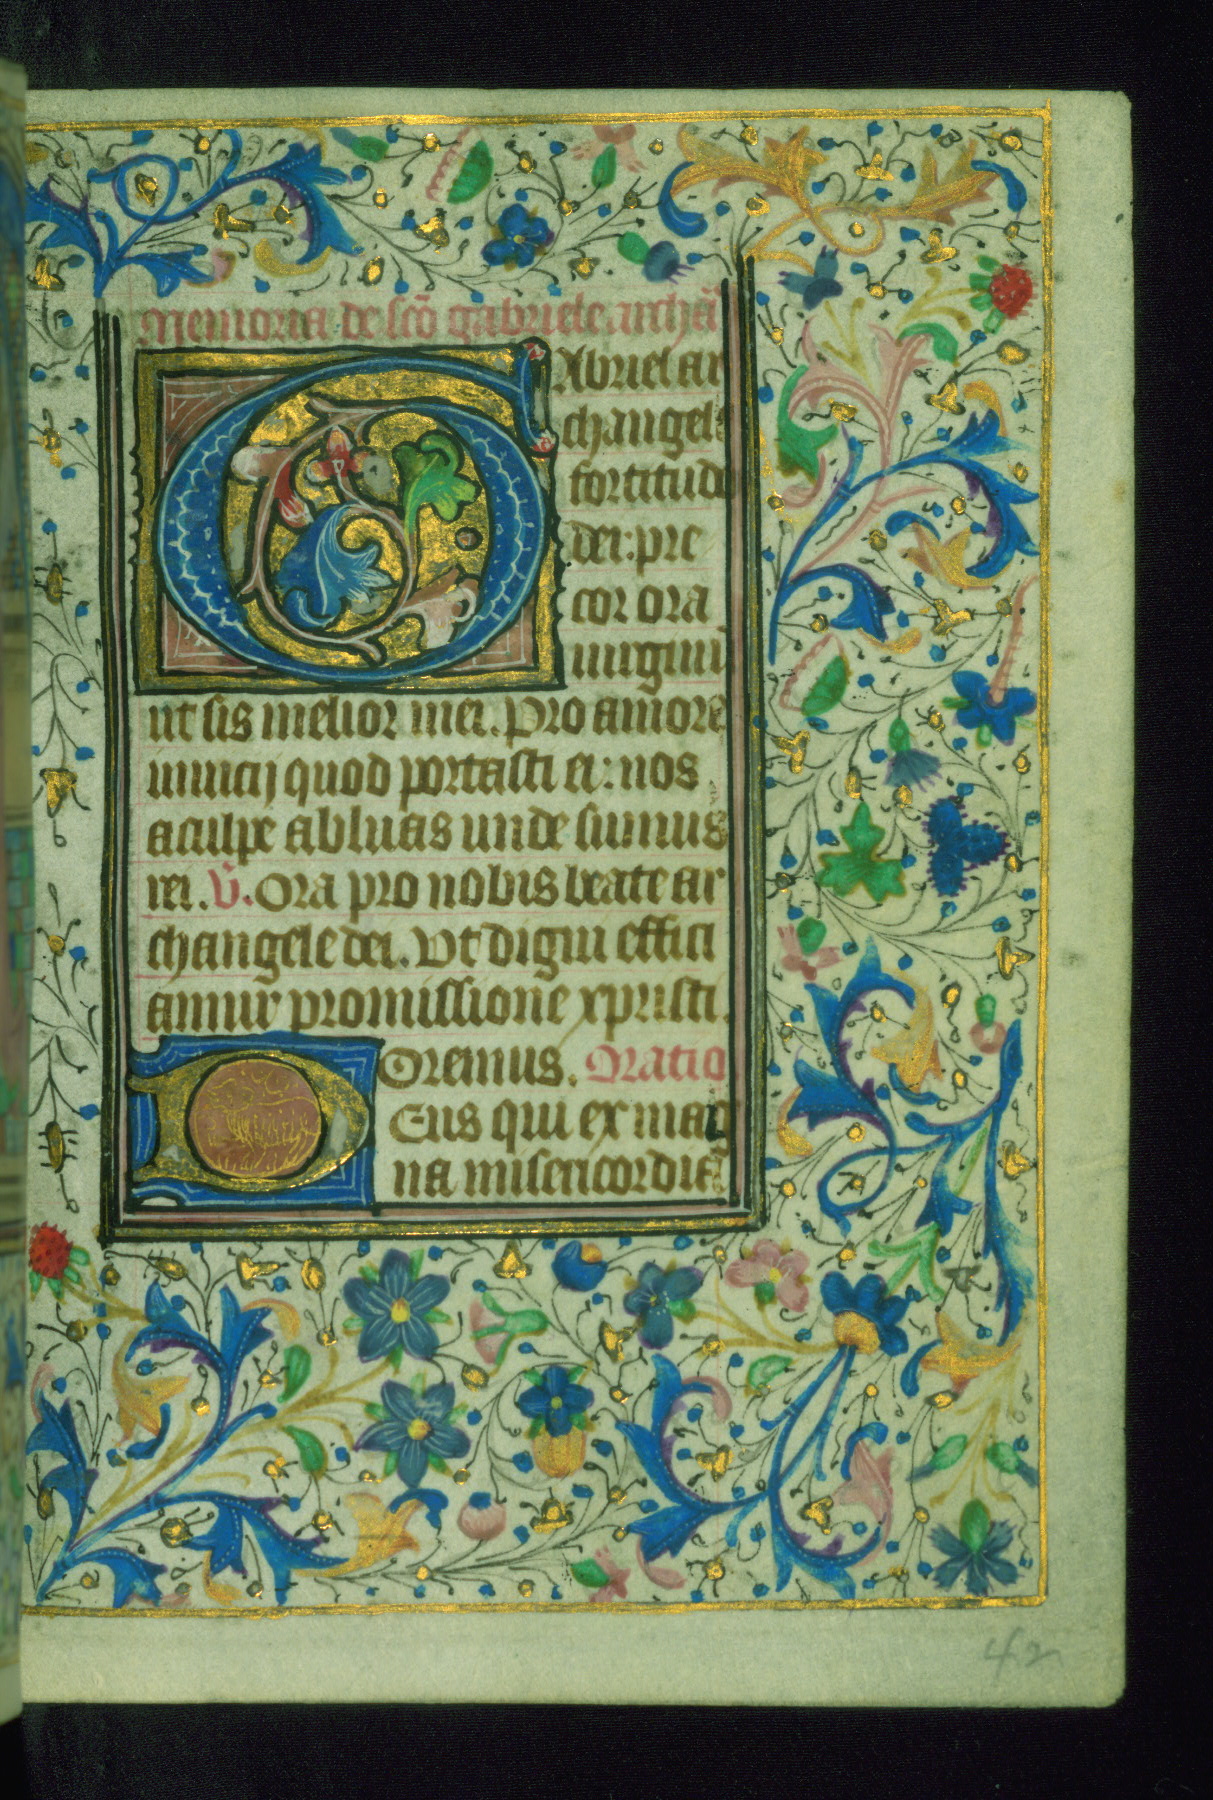 Memoria de sco᷒ gabriele archa᷒
GAbriel ar
changel9
fortitudo
dei: pre
cor ora
uirgini
ut sis melior mei. Pro amore
nuncij quod portasti ei: nos
a culpe abluas unde sumus
rei. V̄. Ora pro nobis beate ar
changele dei. Ut digni effici
amur promissione xpristi.
Oremus. Oratio
DEus qui ex mag
na misericordia
42